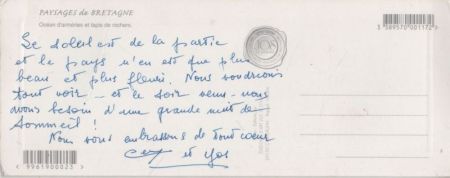 PAYSAGES de BRETAGNE
Océan d'arméries et tapis de rochers.
Le soleil est de la partie
et le pays n'en est que plus
beau et plus fleuri. Nous voudrions
tout voir - et le soir venu - nous
avons besoin d'une grande nuit de
sommeil !
Nous vous embrassons de tout coeur
et
3 589570 001572 >
< 9961900023 >
JOS